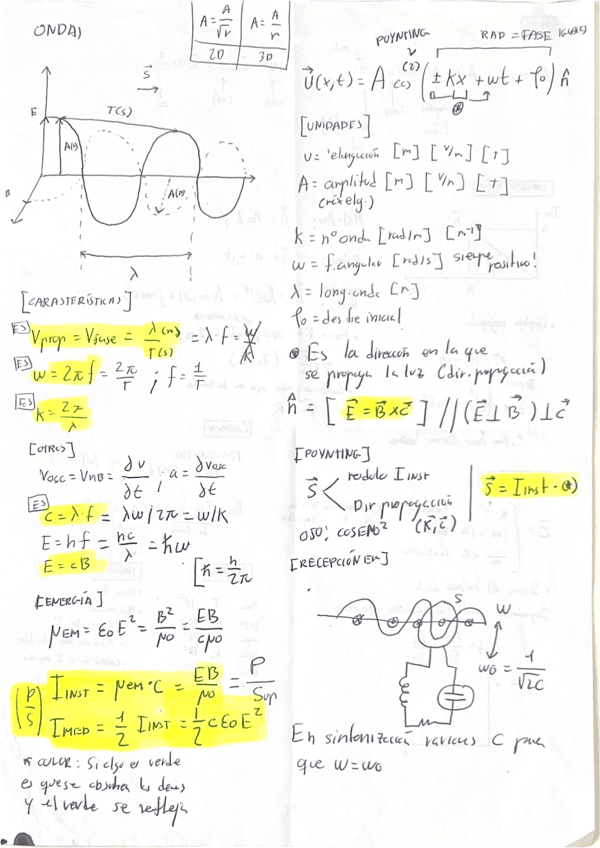 ONDAS
A = A/√r
A = A/r
2D
3D
S⃗
E
T(s)
A(n)
B
A(n)
λ
[CARASTERÍSTICAS]
ES Vprop = Vfase = λ(m)/T(s) = λf = w/k
ES w = 2πf = 2π/T ; f = 1/T
ES k = 2π/λ
[OTRCS]
Vosc = VNB = ∂v/∂t , a = ∂vosc/∂t
ES c = λ·f = λw/2π = w/K
E = hf = hc/λ = ℏw
E = cB
[ℏ = h/2π
[ENERGÍA]
μEM = ε0E² = B²/μ0 = EB/cμ0
(P/S) IINST = μEM·C = EB/μ0 = P/Sup
IMED = 1/2 IINST = 1/2 cε0E²
* COLOR: Si algo es verde
es que se absorben los demas
y el verde se refleja
POYNTING
RAD = FASE
(2)
U⃗(x,t) = A cos (±kx + wt + φ0) n̂
[UNIDADES]
U = elongación [m] [V/m] [T]
A = amplitud [m] [V/m] [T]
(máx elong.)
K = nº onda [rad/m] [m⁻¹]
w = f.angular [rad/s] siempre positivo!
λ = long.onda [m]
φ0 = desfase inicial
⊛ Es la dirección en la que
se propaga la luz (dir. propagación)
n̂ = [E⃗ = B⃗ x c⃗] // (E⃗ ⊥ B⃗) ⊥ c⃗
[POYNTING]
S⃗ < modulo IINST
Dir propagación
(K⃗, c⃗)
S⃗ = IINST · (*)
OJO! COSENO²
[RECEPCIÓN EM]
S
w
w0 = 1/√2C
En sintonización varias C para
que w = w0